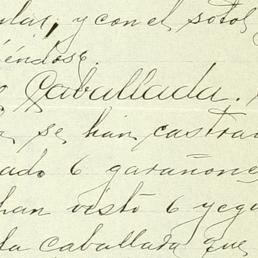 y con el sotol
éndose.
Caballada.
se han castra
ado 6 garañone
han visto 6 yegu
la caballada que